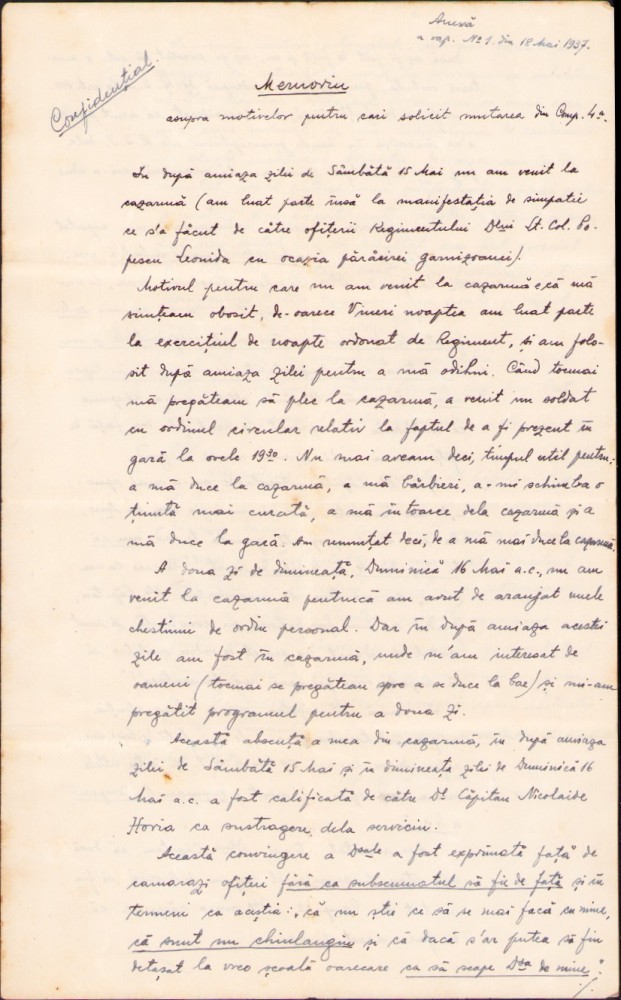 Anexă
a rap. No 1. din 18 Mai 1937.
Confidențial.
Memoriu
asupra motivelor pentru cari solicit mutarea din Comp. 4-a.
În după amiaza zilei de Sâmbătă 15 Mai nu am venit la
cazarmă (am luat parte însă la manifestația de simpatie
ce s'a făcut de către ofițerii Regimentului Dlui Lt. Col. Po-
pescu Leonida cu ocazia părăsirei garnizoanei).
Motivul pentru care nu am venit la cazarmă e că mă
simțeam obosit, de-oarece Vineri noaptea am luat parte
la exercițiul de noapte ordonat de Regiment, și am folo-
sit după amiaza zilei pentru a mă odihni. Când tocmai
mă pregăteam să plec la cazarmă, a venit un soldat
cu ordinul circular relativ la faptul de a fi prezent în
gară la orele 19³⁰. Nu mai aveam deci, timpul util pentru
a mă duce la cazarmă, a mă bărbieri, a-mi schimba o
ținută mai curată, a mă întoarce dela cazarmă și a
mă duce la gară. Am renunțat deci, de a mă mai duce la cazarmă.
A doua zi de dimineață, Duminică 16 Mai a.c., nu am
venit la cazarmă pentrucă am avut de aranjat unele
chestiuni de ordin personal. Dar în după amiaza acestei
zile am fost în cazarmă, unde m'am interesat de
oameni (tocmai se pregăteau spre a se duce la bae) și mi-am
pregătit programul pentru a doua zi.
Această absență a mea din cazarmă, în după amiaza
zilei de Sâmbătă 15 Mai și în dimineața zilei de Duminică 16
Mai a.c. a fost calificată de către Dl. Căpitan Nicolaide
Horia ca sustragere dela serviciu.
Această convingere a Dsale a fost exprimată față de
camarazi ofițeri fără ca subsemnatul să fie de față și în
termeni ca aceștia: „că nu știe ce să se mai facă cu mine,
că sunt un chiulangiu și că dacă s'ar putea să fiu
detașat la vreo școală oarecare ca să scape Dsa de mine"./.